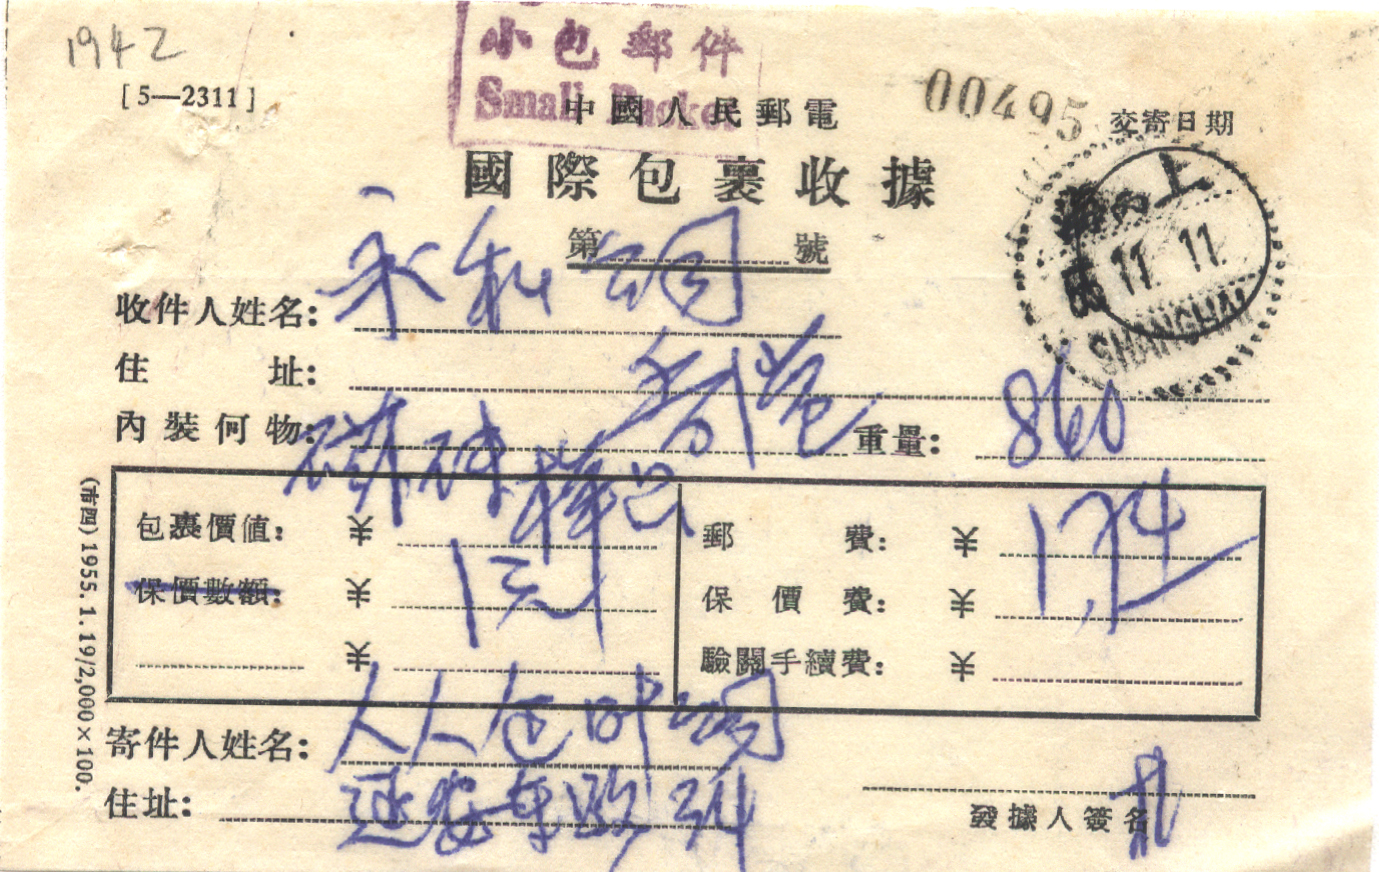 1942
[5—2311]
小包郵件
Small Packet
中國人民郵電
00495
交寄日期
國際包裹收據
第 號
上海
11 11
SHANGHAI
收件人姓名: 永和
住 址: 香港
內裝何物: 樣品
重量: 860
包裹價值: ¥ 1元
郵 費: ¥
保價數額: ¥
保 價 費: ¥
¥
驗關手續費: ¥
寄件人姓名: 人人
住址: 延安東路
發據人簽名
(市四) 1955.1.19/2,000×100.